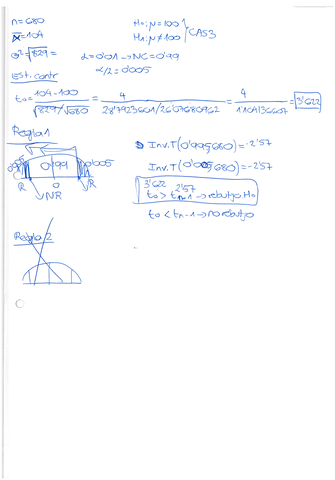 n=680
x̄=104
σ²=√829=
H₀:μ=100
H₁:μ≠100 } CAS3
α=0'01→NC=0'99
α/2=0'005
Est.contr
t₀= 104-100 / √829/√680 = 4 / 28'7923601/26'07680962 = 4 / 1'104136607 = 3'622
Regla 1
0'005 0'99 0'005
R 0 R
NR
Inv.T(0'995,680)=-2'57
Inv.T(0'005,680)=-2'57
3'622 2'57
t₀ > tn-1→rebutjo H₀
t₀ < tn-1→no rebutjo
Regla 2